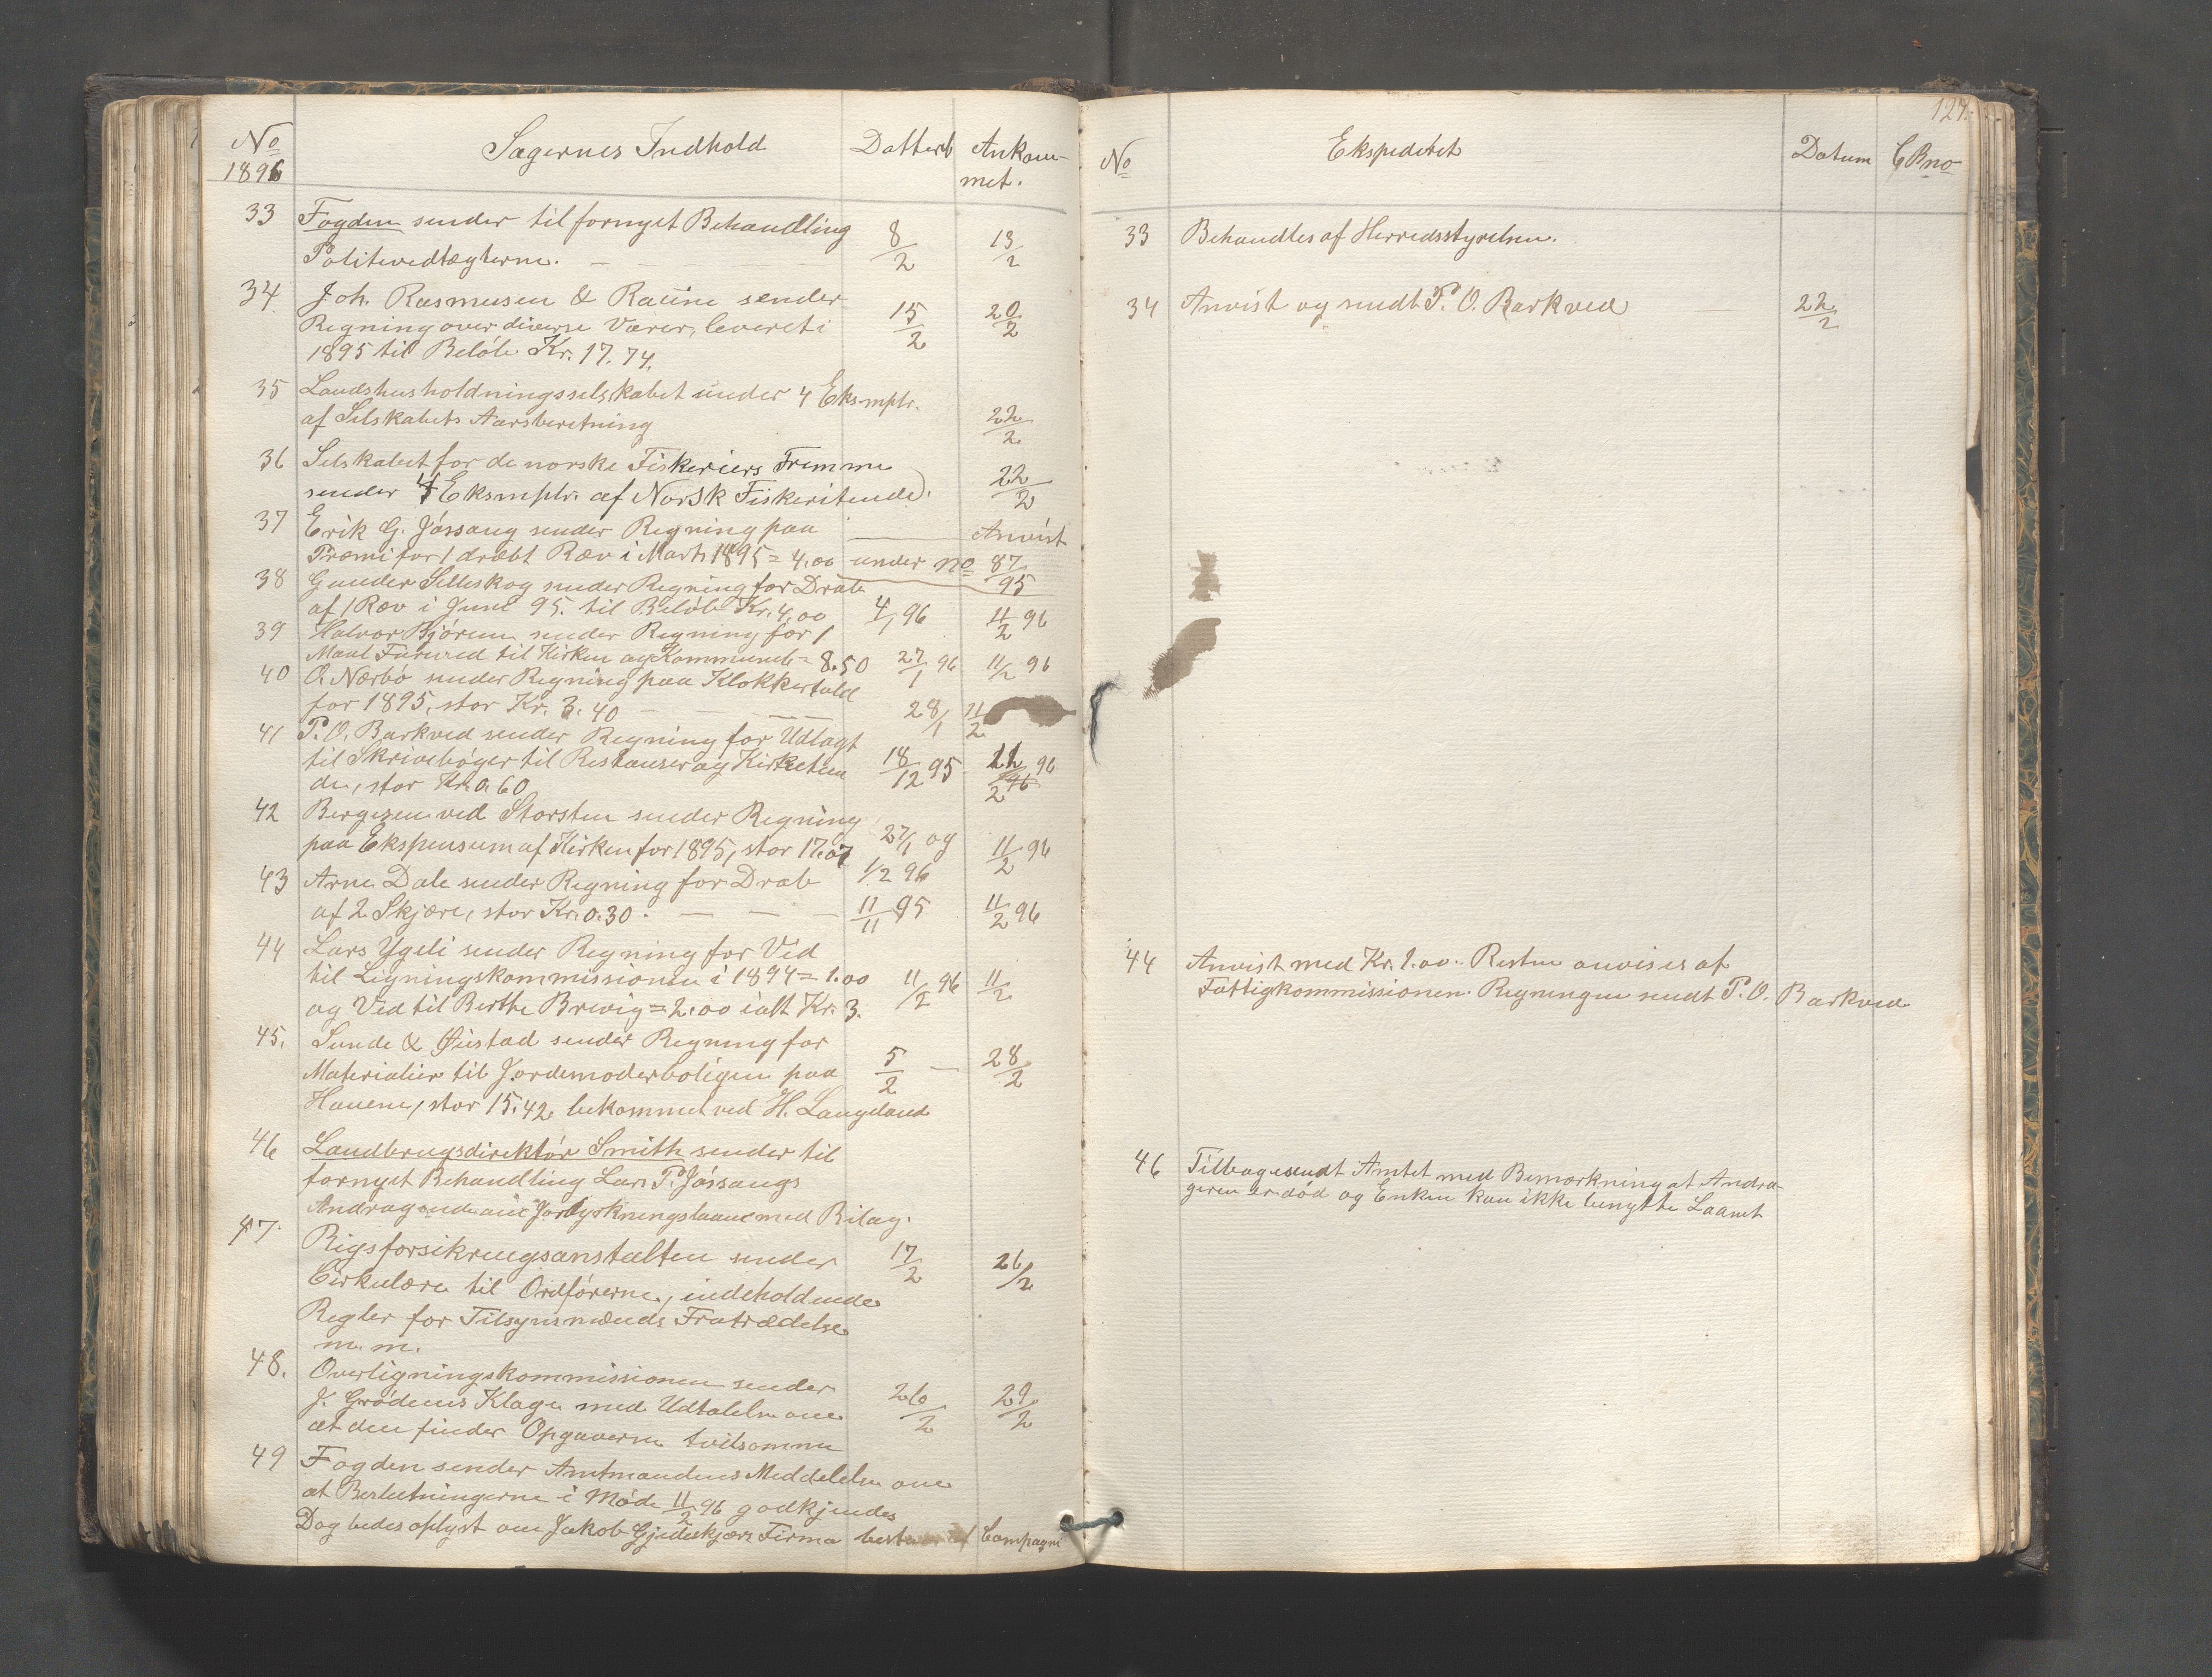 No
1896
Sagernes Indhold
Datteret
Ankom-
met.
33 Fogden sender til fornyet Behandling
Politivedtægterne. 8/2 13/2
34 Joh. Rasmusen & Racine sender
Regning over diverse Varer, leveret i 15/2 20/2
1895 til Beløb Kr. 17.74.
35 Landshusholdningsselskabet sender 4 Eksmplr.
af Selskabets Aarsberetning 22/2
36 Selskabet for de norske Fiskeriers Fremme
sender 4 Eksmplr. af Norsk Fiskeritende). 22/2
37 Erik G. Jøssang sender Regning paa Anvist
Præmi for 1 dræbt Ræv i Marts 1895 = 4.00 under no 87/95
38 Gunder Selleskog sender Regning for Drab
af 1 Ræv i Juni 95. til Beløb Kr. 4,00 4/1 96 11/2 96
39 Halvor Bjørum sender Regning for 1
Maal Fureved til Kirken og Kommunen = 8.50 27/1 96 11/2 96
40 O. Nærbø sender Regning paa Klokkertold
for 1895, stor Kr. 3.40 28/1 11/2
41 P. O. Barkved sender Regning for Udlagt
til Skrivebøger til Restanser og Kirketien
de, stor Kr. 0.60 18/12 95 11/2 96
42 Bergesen ved Storsten sender Regning
paa Ekspensum af Kirken for 1895, stor 17.07 27/1 og 11/2 96
43 Arne Dale sender Regning for Drab 1/2 96
af 2 Skjære, stor Kr. 0.30. 11/11 95 11/2 96
44 Lars Ygeli sender Regning for Ved
til Ligningskommissionen i 1894 = 1.00 11/2 96 11/2
og Ved til Berthe Brevig = 2.00 ialt Kr. 3.
45. Sunde & Øistad sender Regning for
Materialier til Jordemoderboligen paa 5/2 — 28/2
Hauene, stor 15.42. bekommet ved H. Langeland
46 Landbrugsdirektør Smith sender til
fornyet Behandling Lars P. Jøssangs
Andragende om Jorddyrkningslaan med Bilag.
47. Rigsforsikringsanstalten sender 17/2 26/2
Cirkulære til Ordførerne, indeholdende
Regler for Tilsynsmænds Fratrædelse
m. m.
48. Overligningskommissionen sender
J. Grødems Klage med Udtalelse om 26/2 29/2
at den finder Opgaverne tvilsomme
49 Fogden sender Amtmandens Meddelelse om
at Beslutningerne i Møde 11/2 96 godkjendes
Dog bedes oplyst om Jakob Gjedeskjærs Firma bestaar af Compagni
127.
No
Ekspederet
Datum
C B no
33 Behandles af Herredsstyrelsen.
34 Anvist og sendt P. O. Barkved 22/2
44 Anvist med Kr. 1.00. Resten anvises af
Fattigkommissionen. Regningen sendt P. O. Barkved
46 Tilbagesendt Amtet med Bemærkning at Andra-
geren er død og Enken kan ikke benytte Laanet